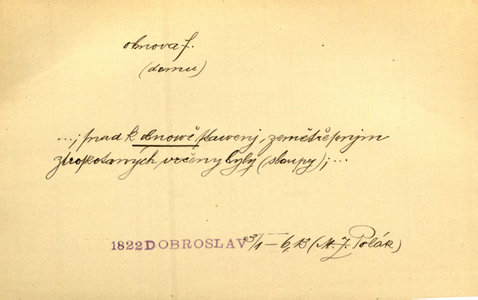 obnova f.
(domu)
...; snad k obnowě stawenj, zemětřesným
ztroskotaných určeny byly (sloupy); ...
1822 DOBROSLAV 3/1 – 6, 13 (M. J. Polák)